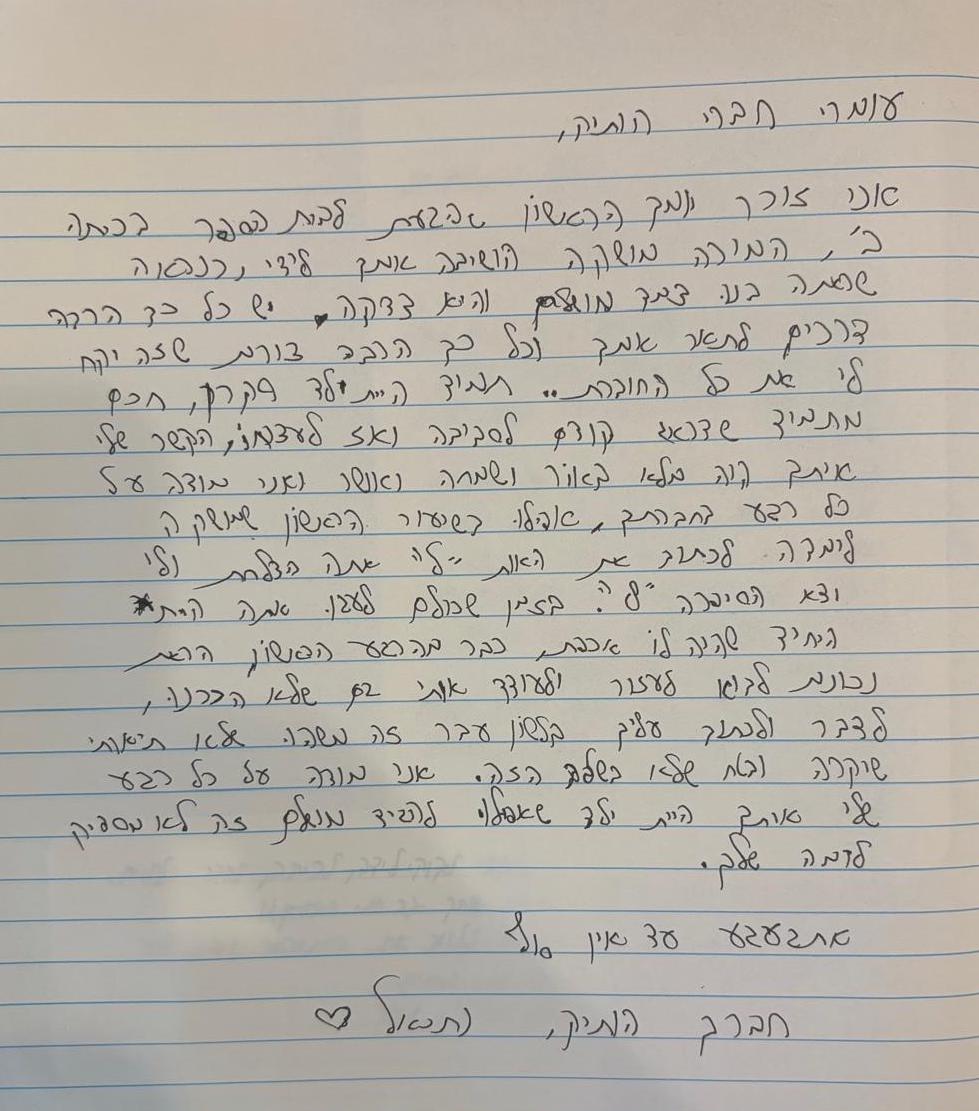 עומרי חברי הותיק,
אני זוכר יומך הראשון שהגעת לבית הספר בכיתה
ב', המורה מושקה הושיבה אותך לידי, כנראה
שראתה בנו צמד מושלם והיא צדקה. יש כל כך הרבה
דרכים לתאר אותך וכל כך הרבה צורות שזה יקח
לי את כל החוברת.. תמיד היית ילד פקחן, חכם
מתמיד שדואג קודם לסביבה ואז לעצמו, הקשר שלי
איתך היה מלא באור ושמחה ואושר ואני מודה על
כל רגע בחברתך, אפילו בשיעור הראשון שמושקה
לימדה לכתוב את האות "ל" אתה הצלחת ולי
יצא הסיפרה "6". בזמן שכולם לעגו אתה היית
היחיד שהיה לו אכפת, כבר מהרגע הראשון הראת
נכונות לבוא לעזור ולעודד אותי גם שלא הכרנו,
לדבר ולכתוב עליך בלשון עבר זה משהו שלא תיארתי
שיקרה ובטח שלא בשלב הזה. אני מודה על כל רגע
שלי אותך היית ילד שאפילו להגיד מושלם זה לא מספיק
לרמה שלך.
אתגעגע עד אין סוף
חברך הותיק, נתנאל ♡